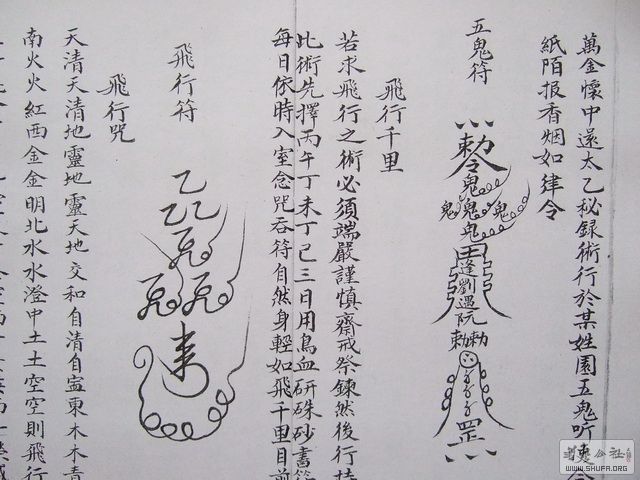 萬金懷中還太乙秘錄術行於某姓園五鬼听使令
紙陌报香烟如律令
五鬼符
勅令
鬼
鬼鬼鬼
鬼
田
逢劉遇阮
勅勅
罡
飛行千里
若求飛行之術必須端嚴謹慎齋戒祭鍊然後行持
此術先擇丙午丁未丁巳三日用鳥血研硃砂書符
每日依時入室念咒吞符自然身輕如飛千里目前
飛行符
飛行咒
天清天清地靈地靈天地交和自清自寍東木木青
南火火紅西金金明北水水澄中土土空空則飛行
公社
WWW.SHUFA.ORG